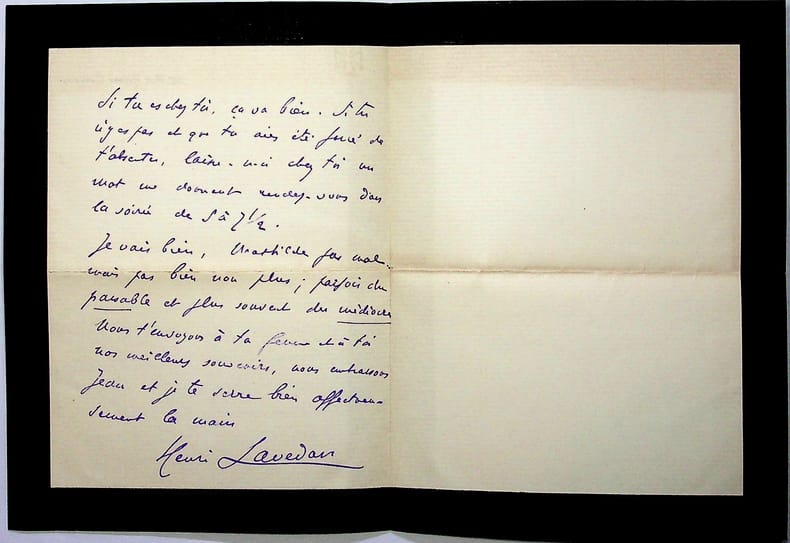 Si tu es chez toi, ça va bien. Si tu
n'y es pas et que tu aies été forcé de
t'absenter, laisse-moi chez toi un
mot me donnant rendez-vous dans
la soirée de 5 à 7 1/2.
Je vais bien, Mathilde pas mal..
mais pas bien non plus ; parfois du
passable et plus souvent du médiocre
Nous t'envoyons à ta femme et à toi
nos meilleurs souvenirs, nous embrassons
Jean et je te serre bien affectueu-
sement la main
Henri Lavedan